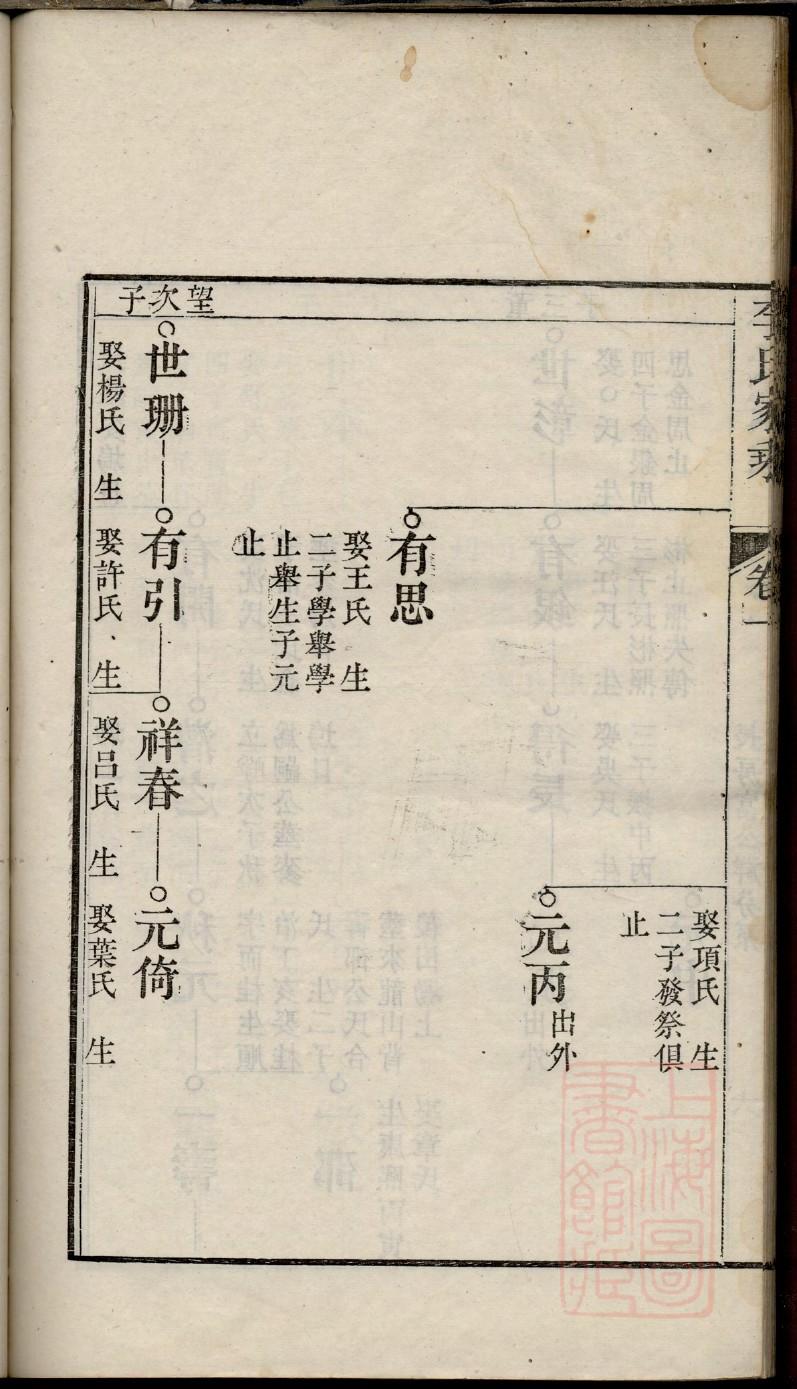 李氏家乘
卷一
娶項氏 生
二子發祭俱
止
元丙
出外
有思
娶王氏 生
二子學舉學
止舉生子元
止
望次子
世珊
有引
祥春
元倚
娶楊氏 生
娶許氏 生
娶呂氏 生
娶葉氏 生
上海圖
書館藏